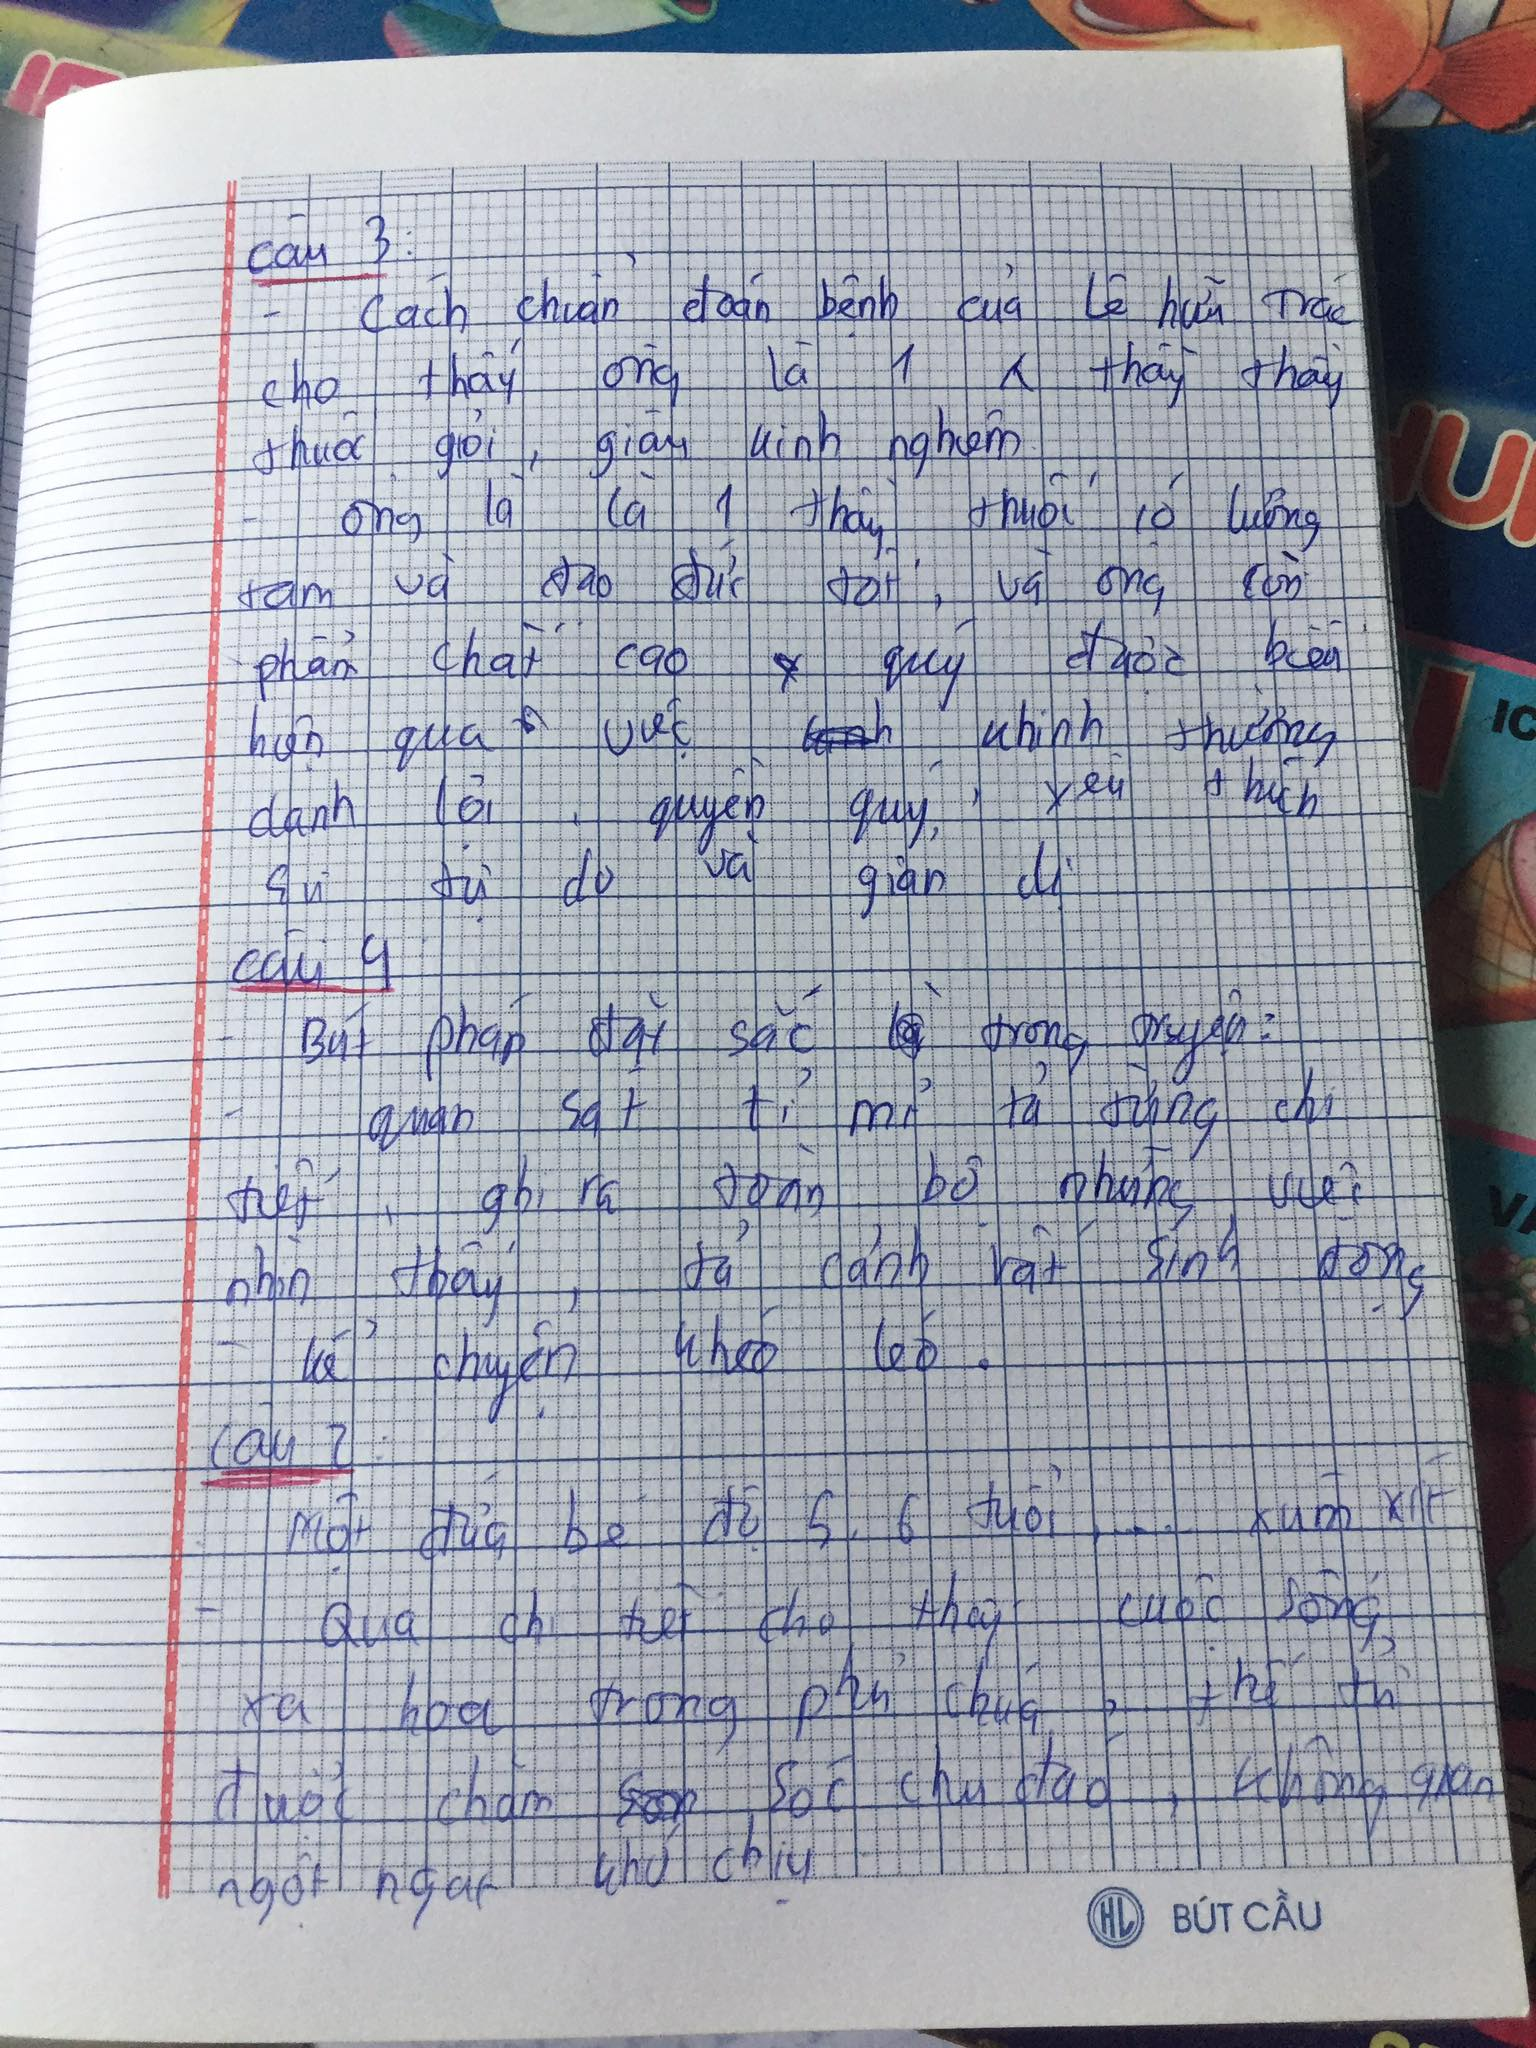 Câu 3:
- Cách chuẩn đoán bệnh của Lê hữu Trác
cho thấy ông là 1 thầy thầy
thuốc giỏi, giàu kinh nghiệm
- ông là là 1 thầy thuốc có lương
tâm và đạo đức tốt, và ông còn
phẩm chất cao quý được biểu
hiện qua việc khinh thường
danh lợi, quyền quý, yêu thích
sự tự do và giản dị
Câu 4
- Bút pháp đặc sắc trong truyện:
- quan sát tỉ mỉ tả từng chi
tiết, ghi ra toàn bộ những việc
nhìn thấy, tả cảnh rất sinh động
- kể chuyện khéo léo.
Câu 2:
Một đứa bé độ 5, 6 tuổi, .... xúm xít
- Qua chi tiết cho thấy cuộc sống
xa hoa trong phủ chúa, thế tử
được chăm sóc chu đáo, không gian
ngột ngạt khó chịu
HL BÚT CẦU
IC